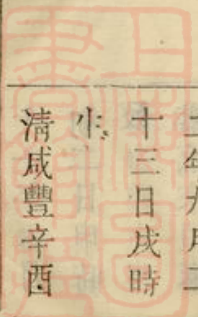 年九月二
十三日戌時
小
清咸豐辛酉